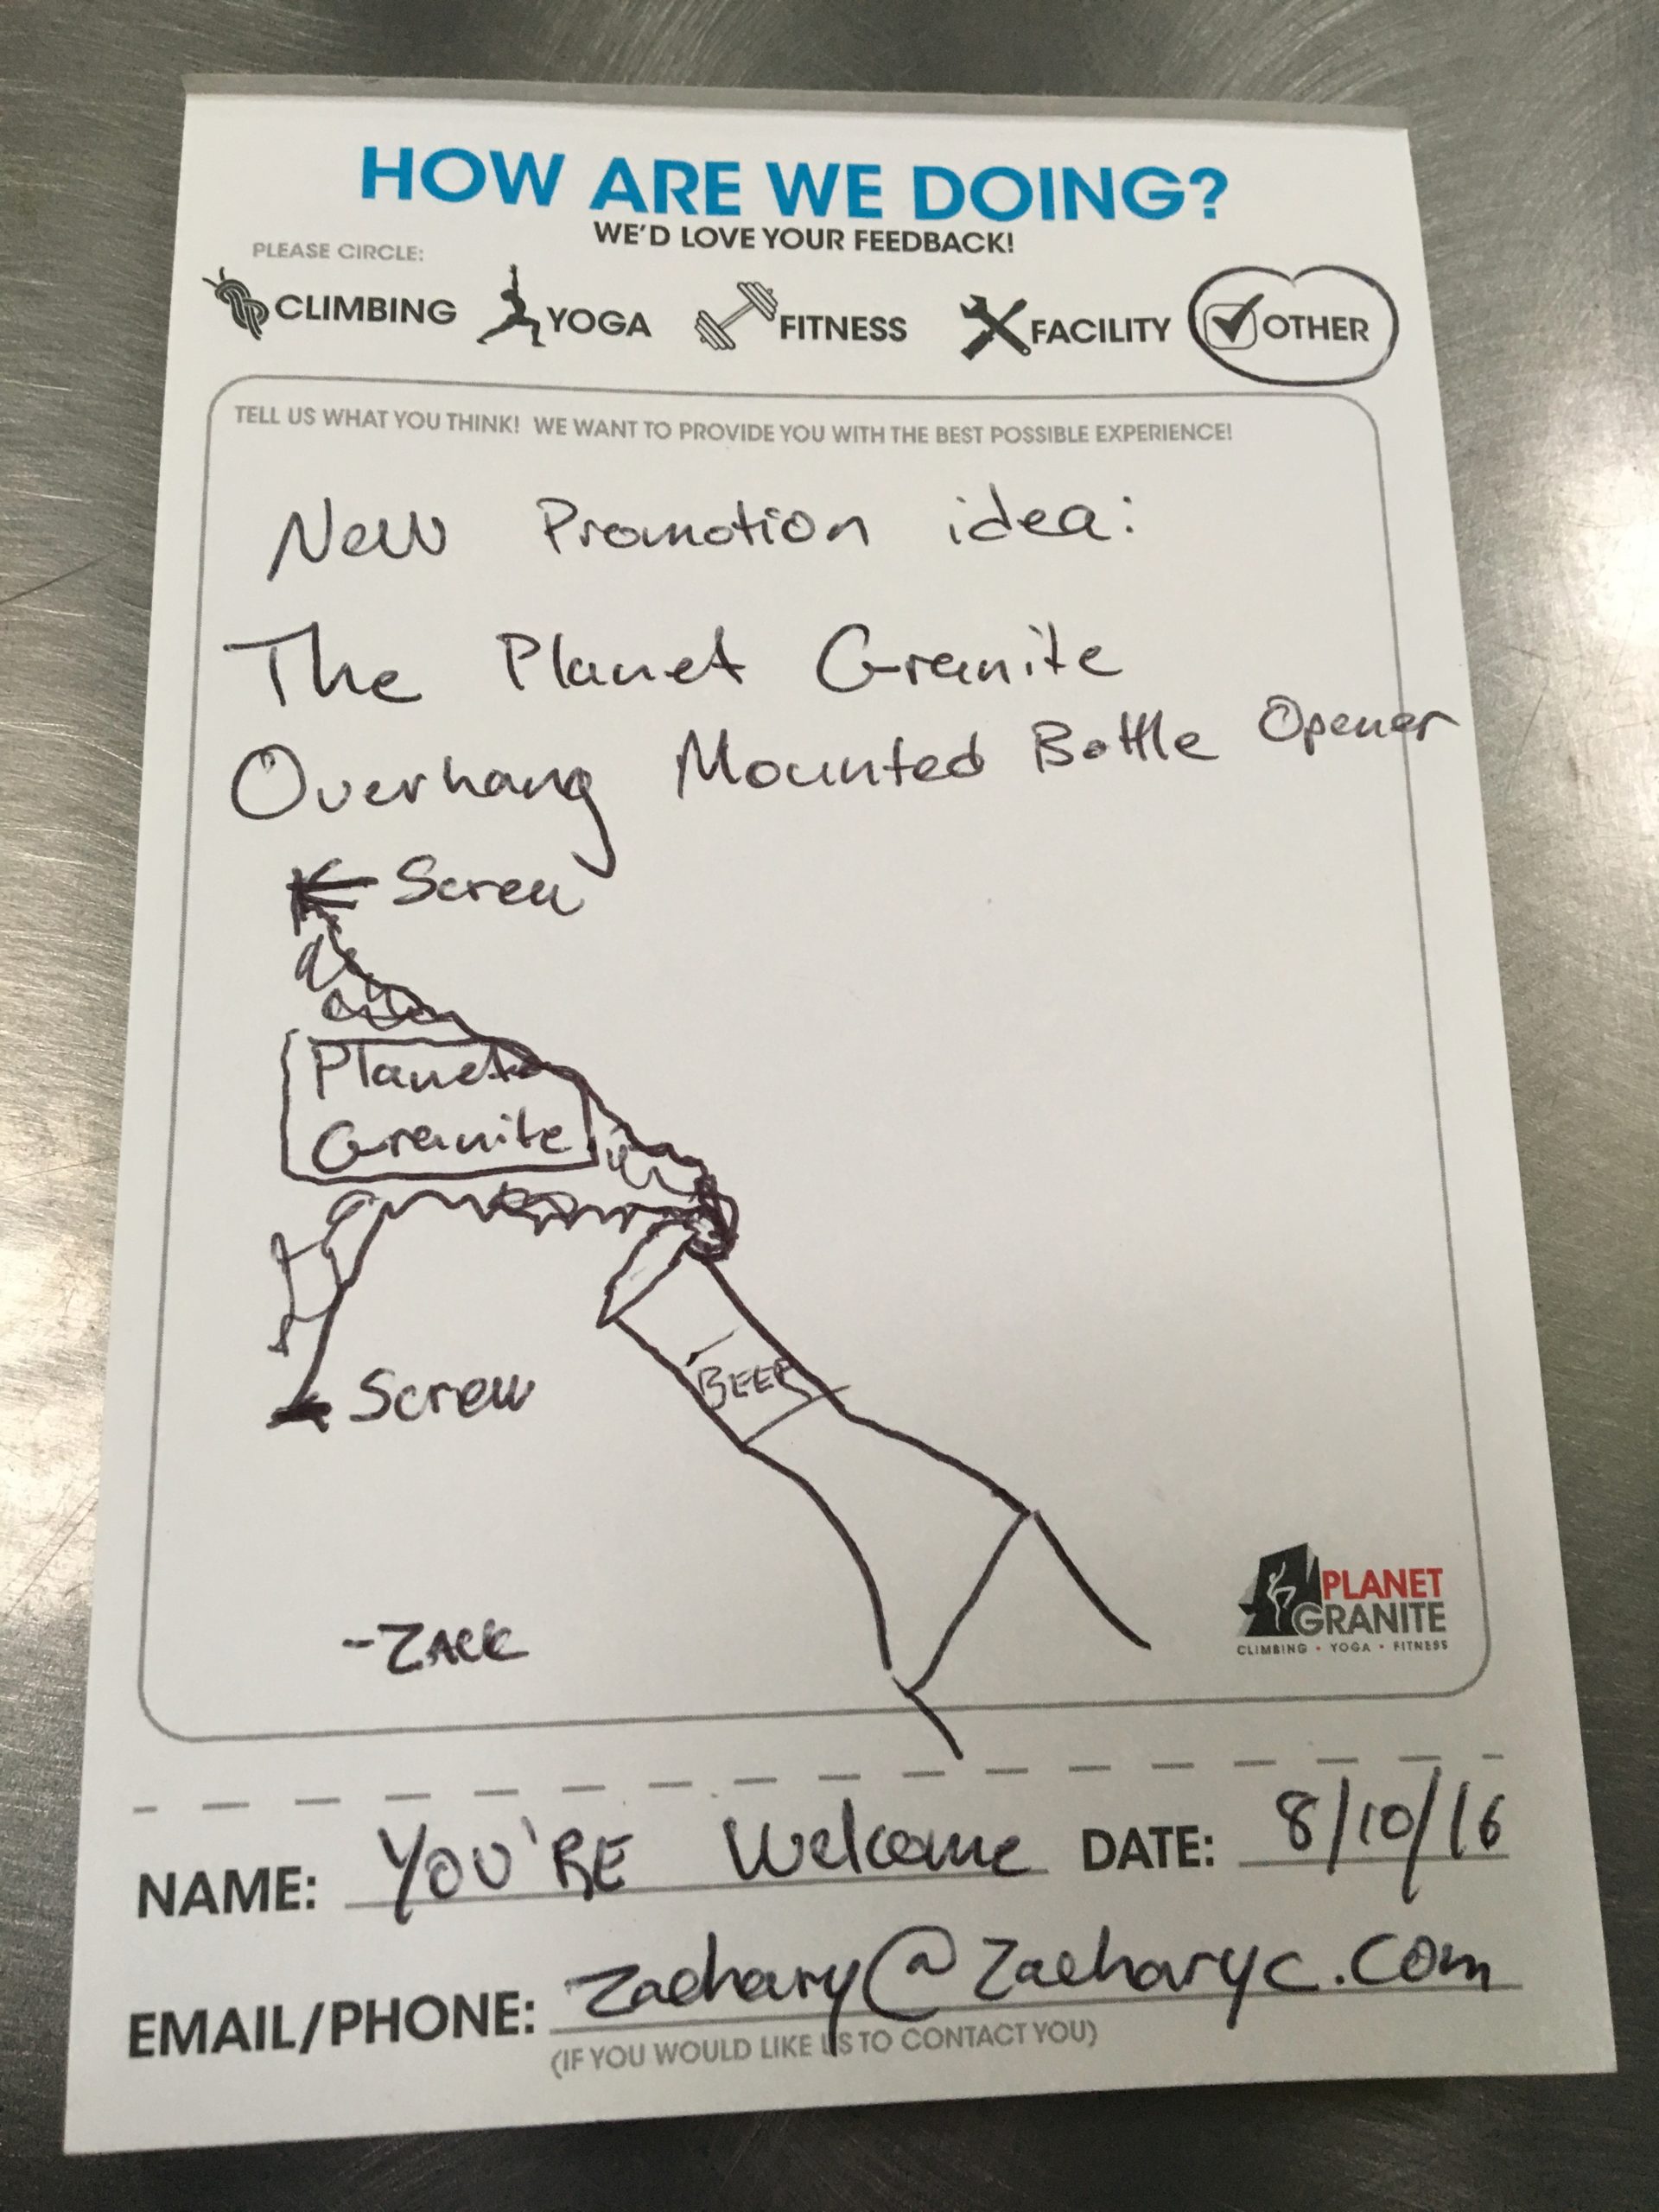 HOW ARE WE DOING?
WE'D LOVE YOUR FEEDBACK!
PLEASE CIRCLE:
CLIMBING YOGA FITNESS FACILITY OTHER
TELL US WHAT YOU THINK! WE WANT TO PROVIDE YOU WITH THE BEST POSSIBLE EXPERIENCE!
New Promotion idea:
The Planet Granite
Overhang Mounted Bottle Opener
Screw
Planet
Granite
BEER
Screw
PLANET
GRANITE
CLIMBING • YOGA • FITNESS
-ZACK
NAME: YOU'RE Welcome DATE: 8/10/16
EMAIL/PHONE: Zachary@Zacharyc.com
(IF YOU WOULD LIKE US TO CONTACT YOU)